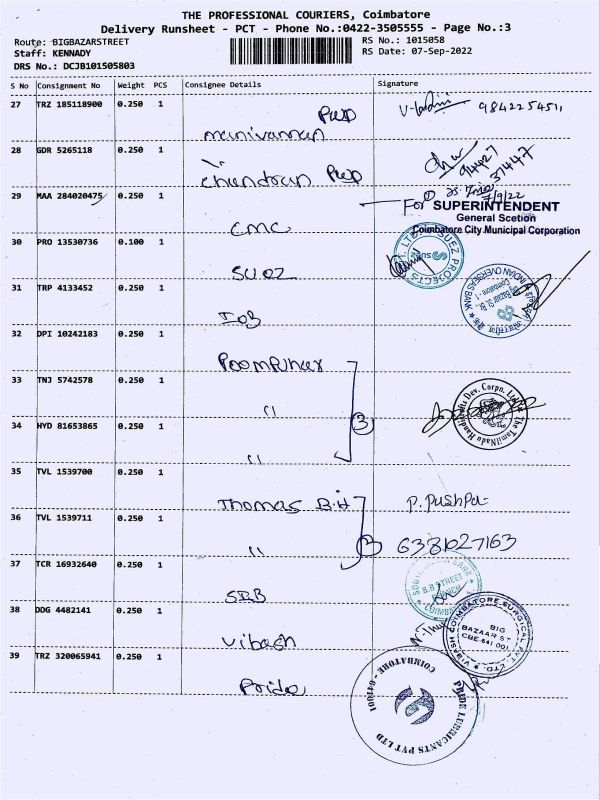 THE PROFESSIONAL COURIERS, Coimbatore
Delivery Runsheet - PCT - Phone No.:0422-3505555 - Page No.:3
Route: BIGBAZARSTREET
Staff: KENNADY
DRS No.: DCJB101505803
RS No.: 1015058
RS Date: 07-Sep-2022
S No Consignment No Weight PCS Consignee Details Signature
27 TRZ 185118900 0.250 1 manivannan 9842254511
28 GDR 5265118 0.250 1 chandran 94427 37447
29 MAA 284020475 0.250 1 CMC
7/9/22
For SUPERINTENDENT
General Scetion
Coimbatore City Municipal Corporation
30 PRO 13530736 0.100 1 SUEZ
SUEZ PROJECTS
31 TRP 4133452 0.250 1 IOB
INDIAN OVERSEAS BANK
Big Bazaar St. Br.
Coimbatore - 1
32 DPI 10242183 0.250 1 Poompuhar
33 TNJ 5742578 0.250 1 "
3
34 HYD 81653865 0.250 1 "
The TamilNadu Handicrafts Dev. Corpn. Ltd.
35 TVL 1539700 0.250 1 Thomas B.H P. Pushpa
36 TVL 1539711 0.250 1 " 6381027163
37 TCR 16932640 0.250 1 SIB
SOUTH INDIAN BANK
B.B. STREET
BRANCH
COIMBATORE
38 DDG 4482141 0.250 1 Vibash
VIBASH COIMBATORE SURGICAL PVT. LTD.
BIG
BAZAAR ST
CBE-641 001
39 TRZ 320065941 0.250 1 Pride
PRIDE LUBRICANTS PVT LTD
COIMBATORE - 641001